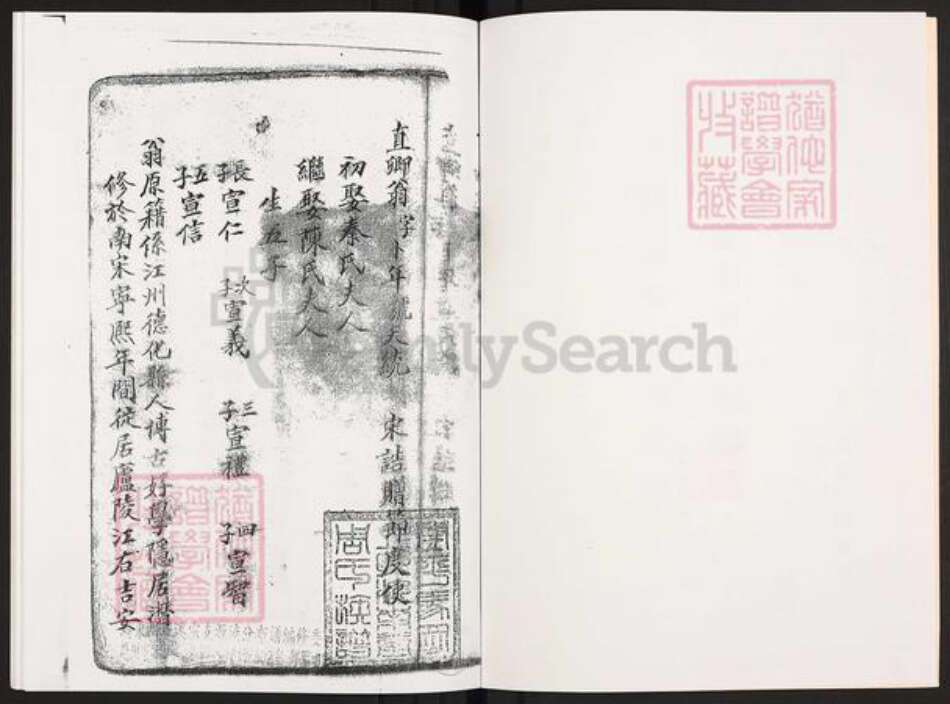 直卿翁字卜年號天統　宋誥贈節度使
初娶秦氏夫人
繼娶陳氏夫人
生五子
長子宣仁　次子宣義　三子宣禮　四子宣智
五子宣信
翁原籍係江州德化縣人博古好學隱居潛
修於南宋寧熙年間徒居廬陵江右吉安
譜學會
收藏
FamilySearch